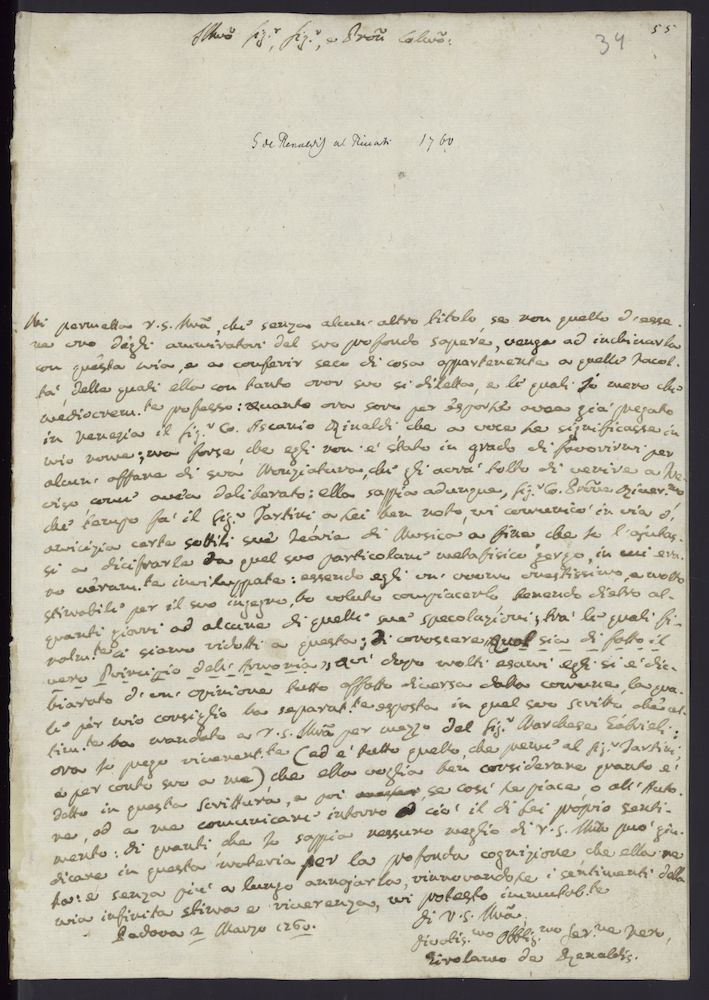 55
34
Illmõ Sig.r, Sig.r, e Prõn Colmõ:
G de Renaldis al Riccati 1760
Mi permetta V.S. Illmã, che senza alcun' altro titolo, se non quello d'esse-
re uno degli ammiratori del suo profondo sapere, venga ad inchinarla
con questa mia, e a conferir seco di cosa appartenente a quelle facol-
tà, delle quali ella con tanto onor suo si diletta, e le quali Io mero che
mediocrem.te professo: quanto ora sono per esporle avea già pregato
in Venezia il Sig.r Co. Ascanio Rinaldi che a voce le significasse in
mio nome; ma forse, che egli non è stato in grado di favorirmi per
alcun' affare di sua che gli avrà tolto di venire a Tre-
viso come avea deliberato: ella sappia adunque, Sig.r Co. Prõne
che tempo fa il Sig.r Tartini a Lei ben noto, mi comunicò in via d'
amicizia certe sottili sue Teorie di Musica a fine, che Io l'ajutas-
si a dicifrarle da quel suo particolare metafisico gergo, in cui era-
no veram.te inviluppate: essendo egli un' uomo onestissimo, e molto
stimabile per il suo ingegno, ho voluto compiacerlo tenendo dietro al-
quanti giorni ad alcune di quelle sue specolazioni; trà le quali fi-
nalm.te ci siamo ridotti a questa; di conoscere qual sia di fatto il
vero Principio dell'Armonia; quì dopo molti esami egli si è dic-
hiarato d'un' opinione tutto affatto diversa dalla comune, la qua-
le per mio consiglio ha separat.te esposta in quel suo scritto che ul-
tim.te ha mandato a V.S. Illmã per mezzo del Sig.r Marchese Gabrieli:
ora Io prego riverent.te (ed è tutto quello, che preme al Sig.r Tartini,
e per conto suo a me) che ella voglia ben considerare quanto è
detto in questa Scrittura, e poi, se così le piace, o all'Auto-
re, od a me comunicare intorno a ciò il di Lei proprio senti-
mento: di quanti che Io sappia nessuno meglio di V.S. Illmã può giu-
dicare in questa materia per la profonda cognizione che ella ne
ha: e senza più a lungo annojarla, rinnovandole i sentimenti della
mia infinita stima e riverenza, mi protesto immutab.te
Di V.S. Illmã
Padova 2 Marzo 1760.
Divotis.mo Obblig.mo Ser.re Vero,
Girolamo de Renaldis.